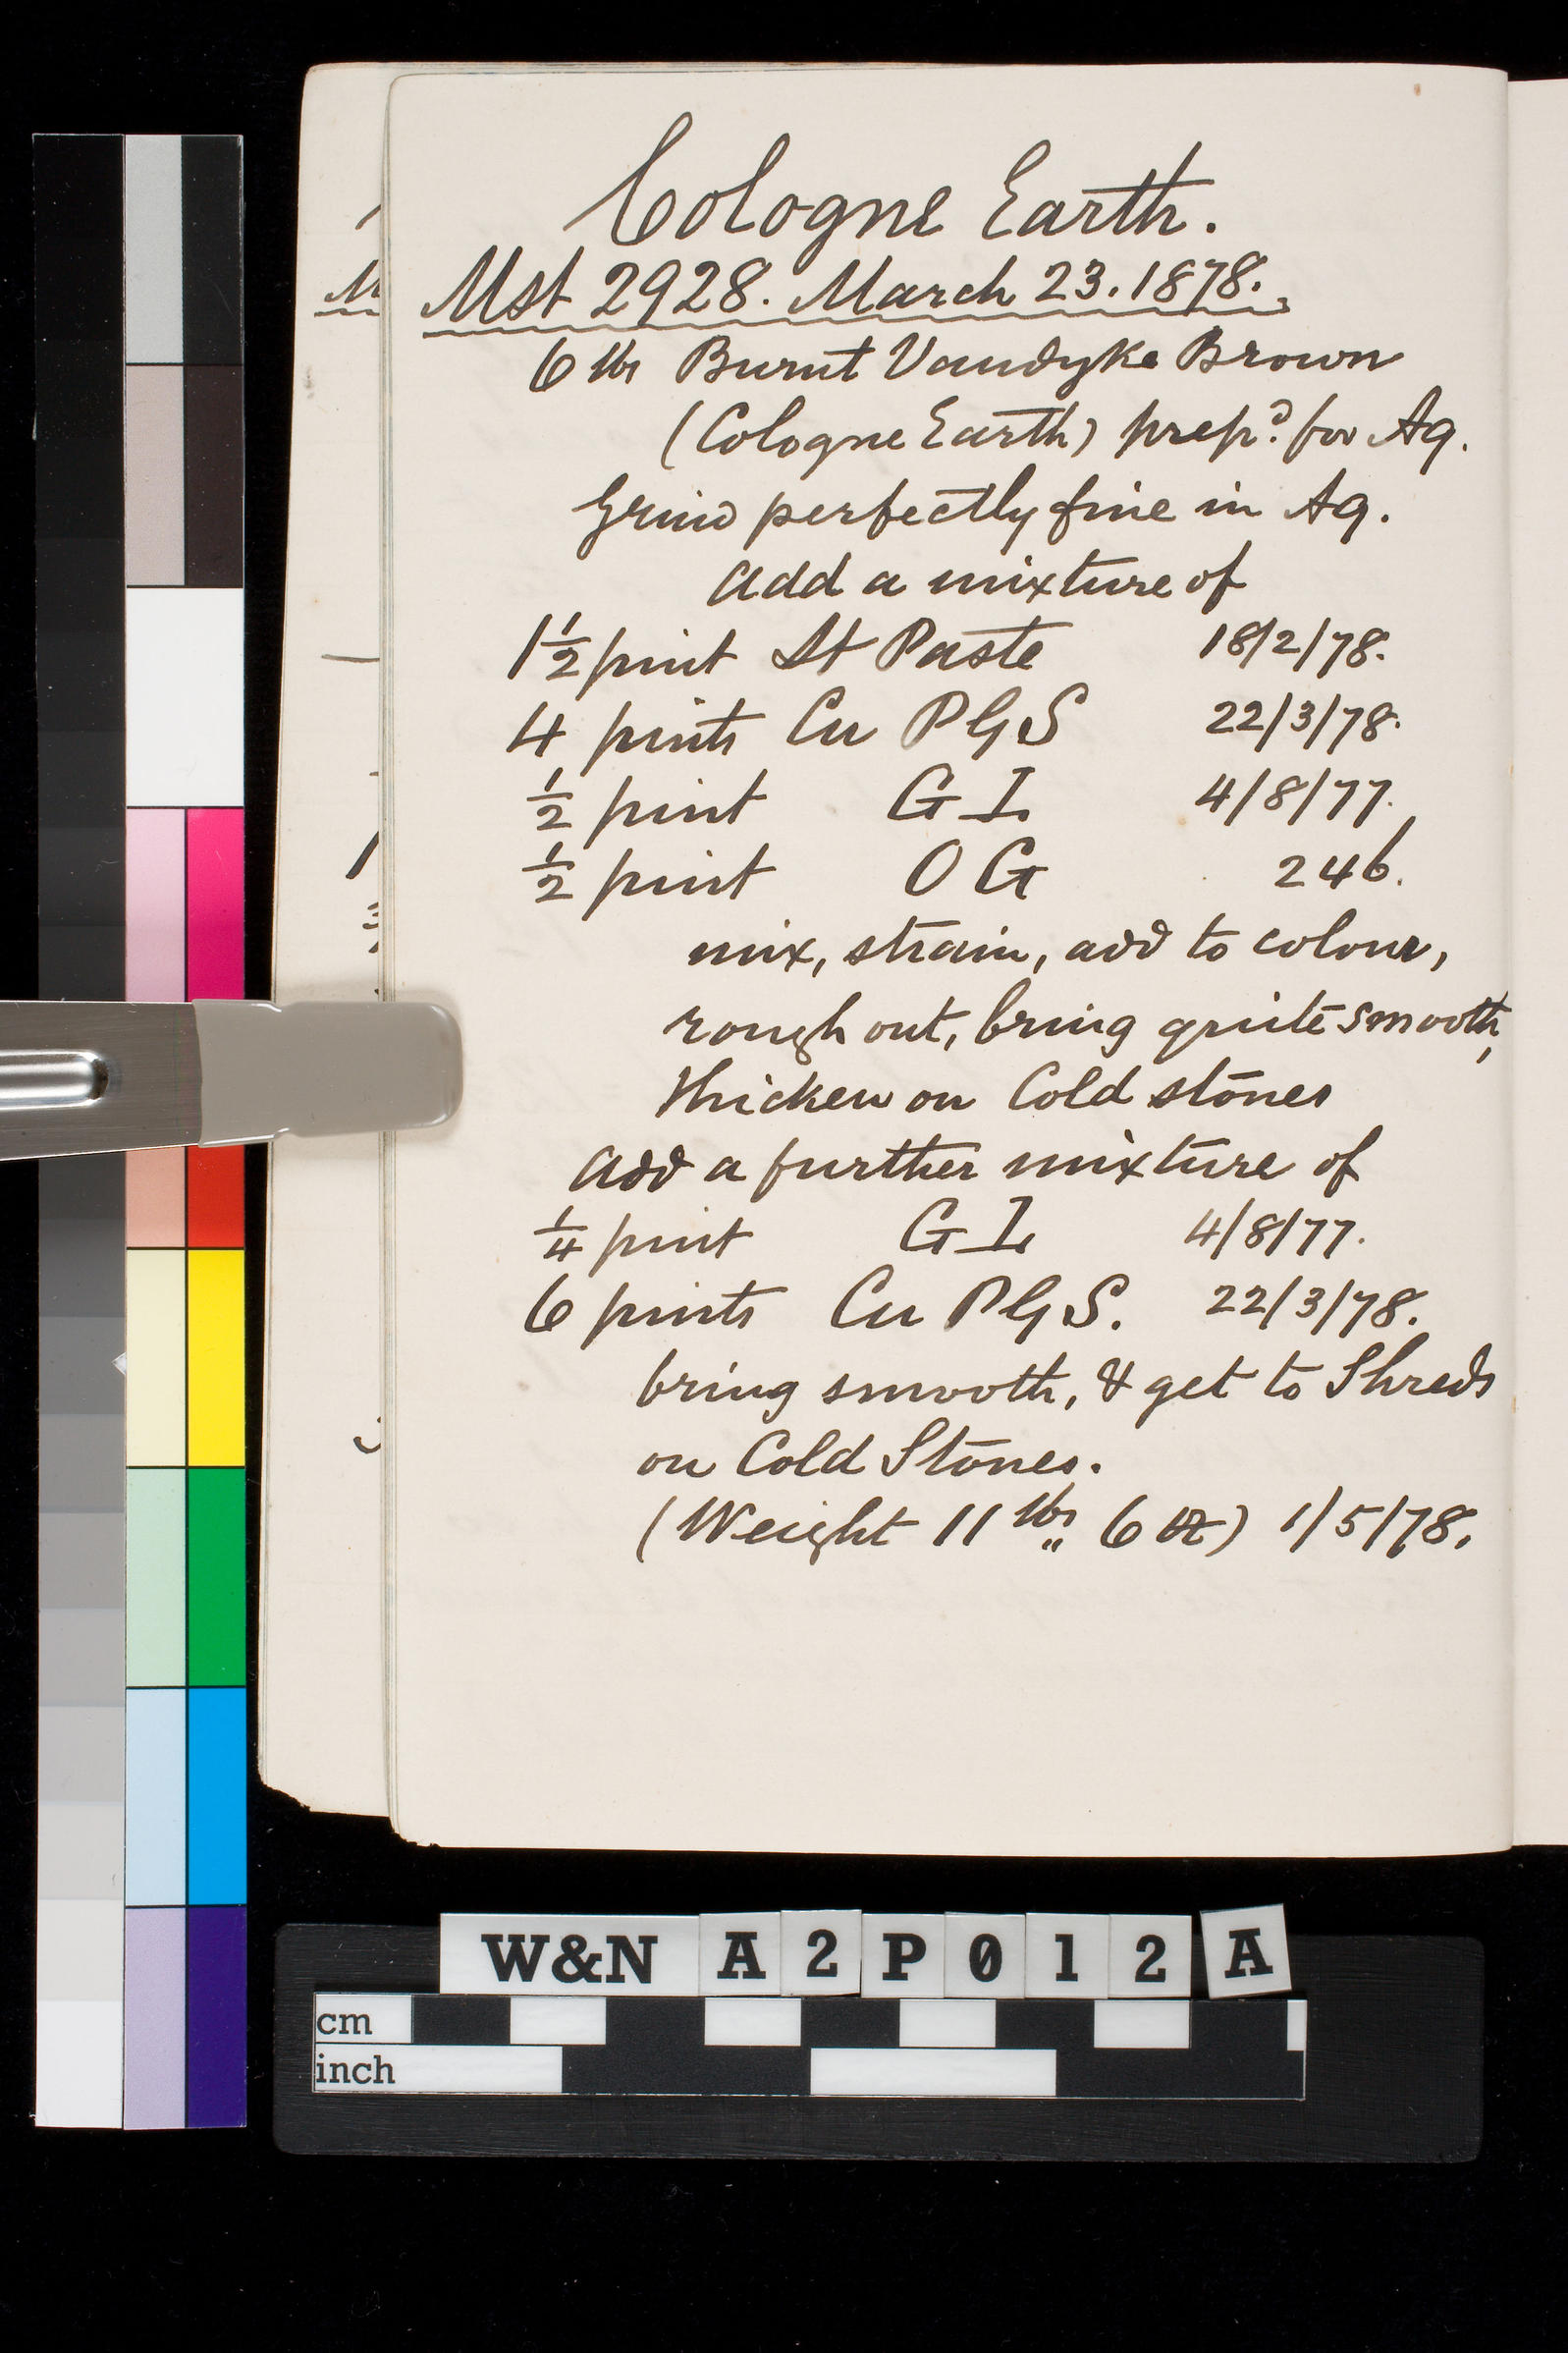 Cologne Earth.
Mst 2928. March 23. 1878.
6 lbs Burnt Vandyke Brown
(Cologne Earth) prepd. for Aq.
Grind perfectly fine in Aq.
add a mixture of
1½ pint St Paste 18/2/78.
4 pints Cu PGS 22/3/78.
½ pint GI 4/8/77.
½ pint OG 246.
mix, strain, add to colour,
rough out, bring quite smooth,
thicken on Cold stones
add a further mixture of
¼ pint GI 4/8/77.
6 pints Cu PGS. 22/3/78.
bring smooth, & get to Shreds
on Cold Stones.
(Weight 11 lbs 6 oz) 1/5/78.
W&N A2P012A
cm
inch